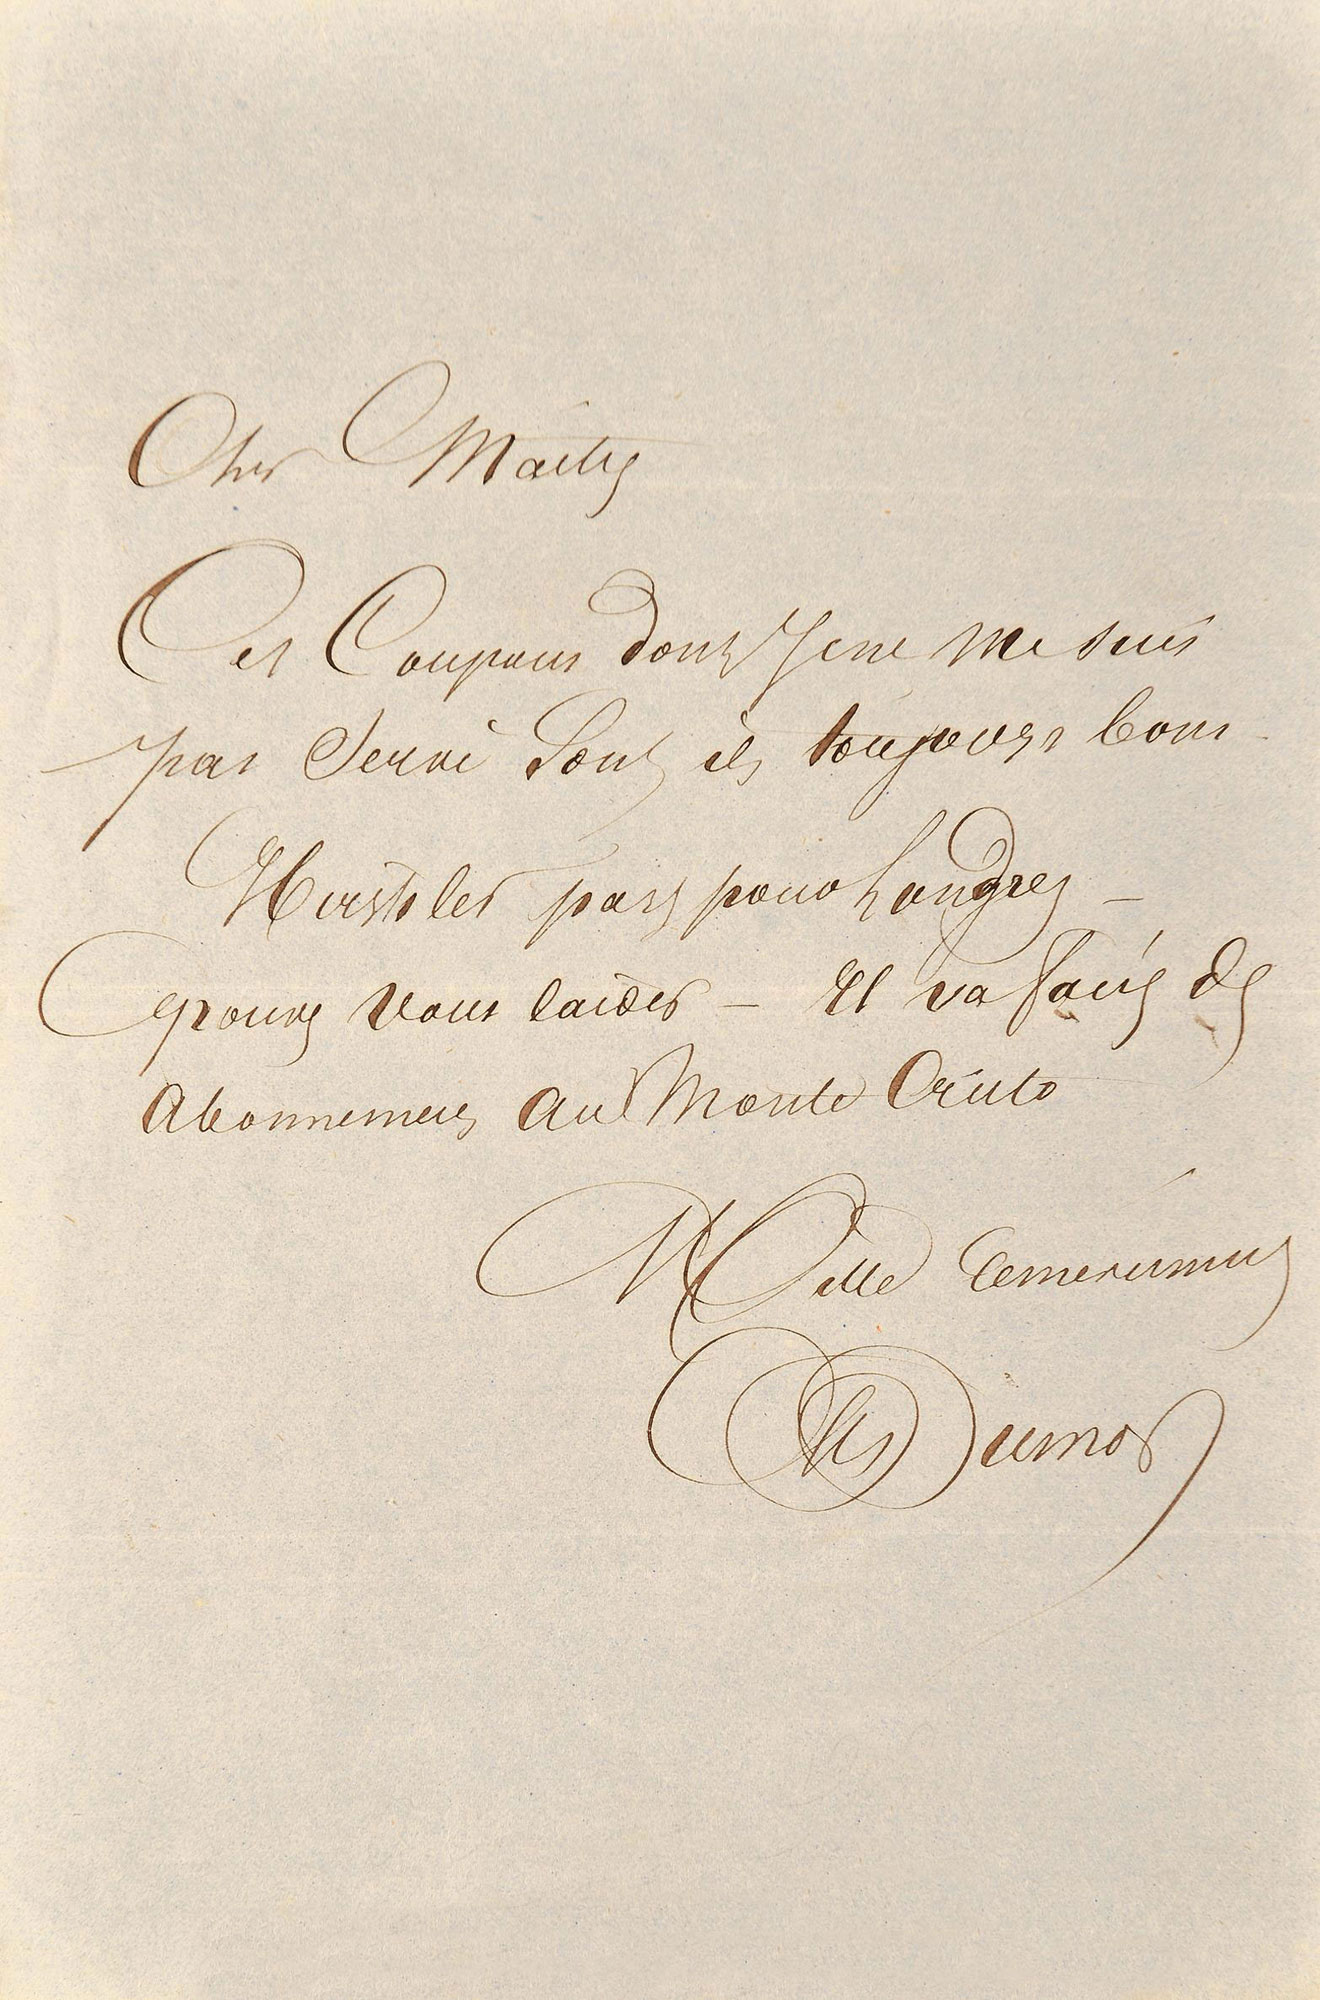 Cher Maitre
Ces Coupons dont Je ne me suis
pas Servi Sont ils toujours bons
part pour Londres –
vous l'aider – Il va faire des
Abonnements au Monte Cristo
Mille remerciments
Alex Dumas